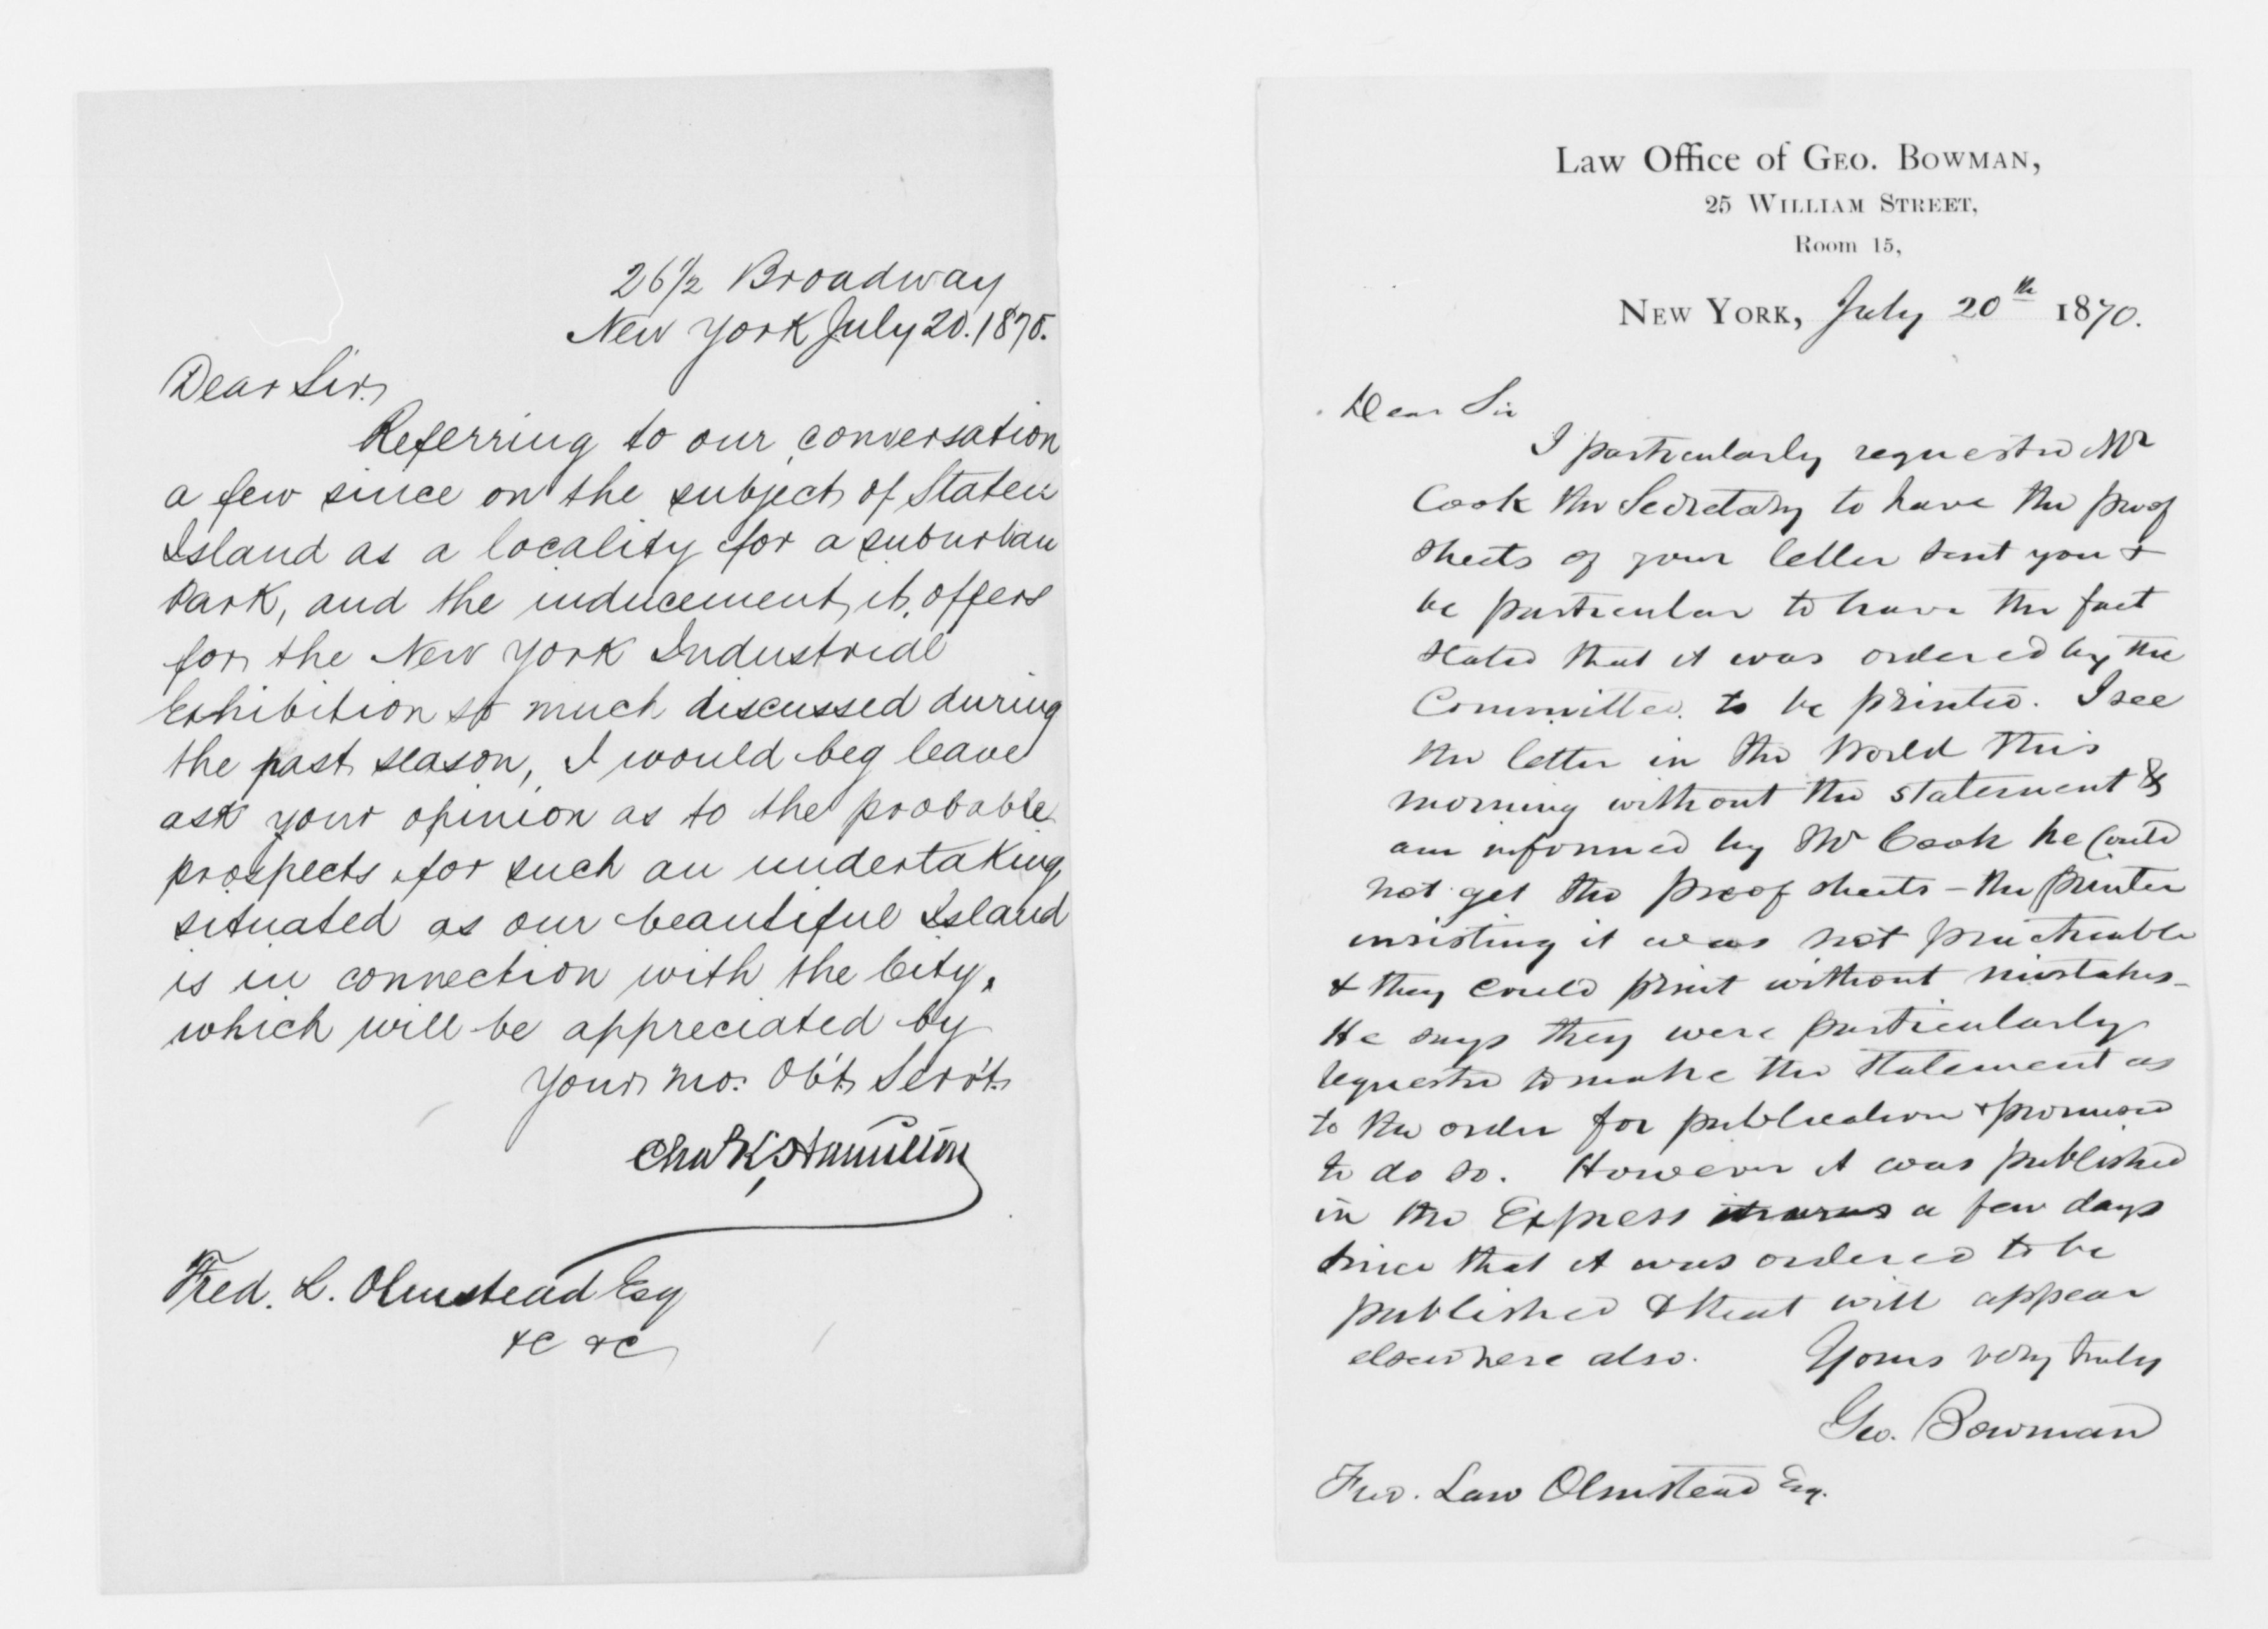 26 1/2 Broadway
New York July 20. 1870.
Dear Sir,
Referring to our conversation
a few since on the subject of Staten
Island as a locality for a suburban
Park, and the inducement, it, offers
for the New York Industrial
Exhibition so much discussed during
the past season, I would beg leave
ask your opinion as to the probable
prospects for such an undertaking,
situated as our beautiful Island
is in connection with the City,
which will be appreciated by
Your mo. Ob't Serv't
Chas K Hamilton
Fred. L. Olmstead Esq
&c &c
Law Office of Geo. Bowman,
25 William Street,
Room 15,
New York, July 20th 1870.
Dear Sir
I particularly requested Mr
Cook the Secretary to have the proof
sheets of your letter sent you &
be particular to have the fact
stated that it was ordered by the
Committee to be printed. I see
the letter in the World this
morning without the statement &
am informed by Mr Cook he could
not get the proof sheets - the printer
insisting it was not practicable
& they could print without mistakes -
He says they were particularly
requested to make the statement as
to the order for publication & promised
to do so. However it was published
in the Express a few days
since that it was ordered to be
published & that will appear
elsewhere also. Yours very truly
Geo. Bowman
Fred. Law Olmstead Esq.